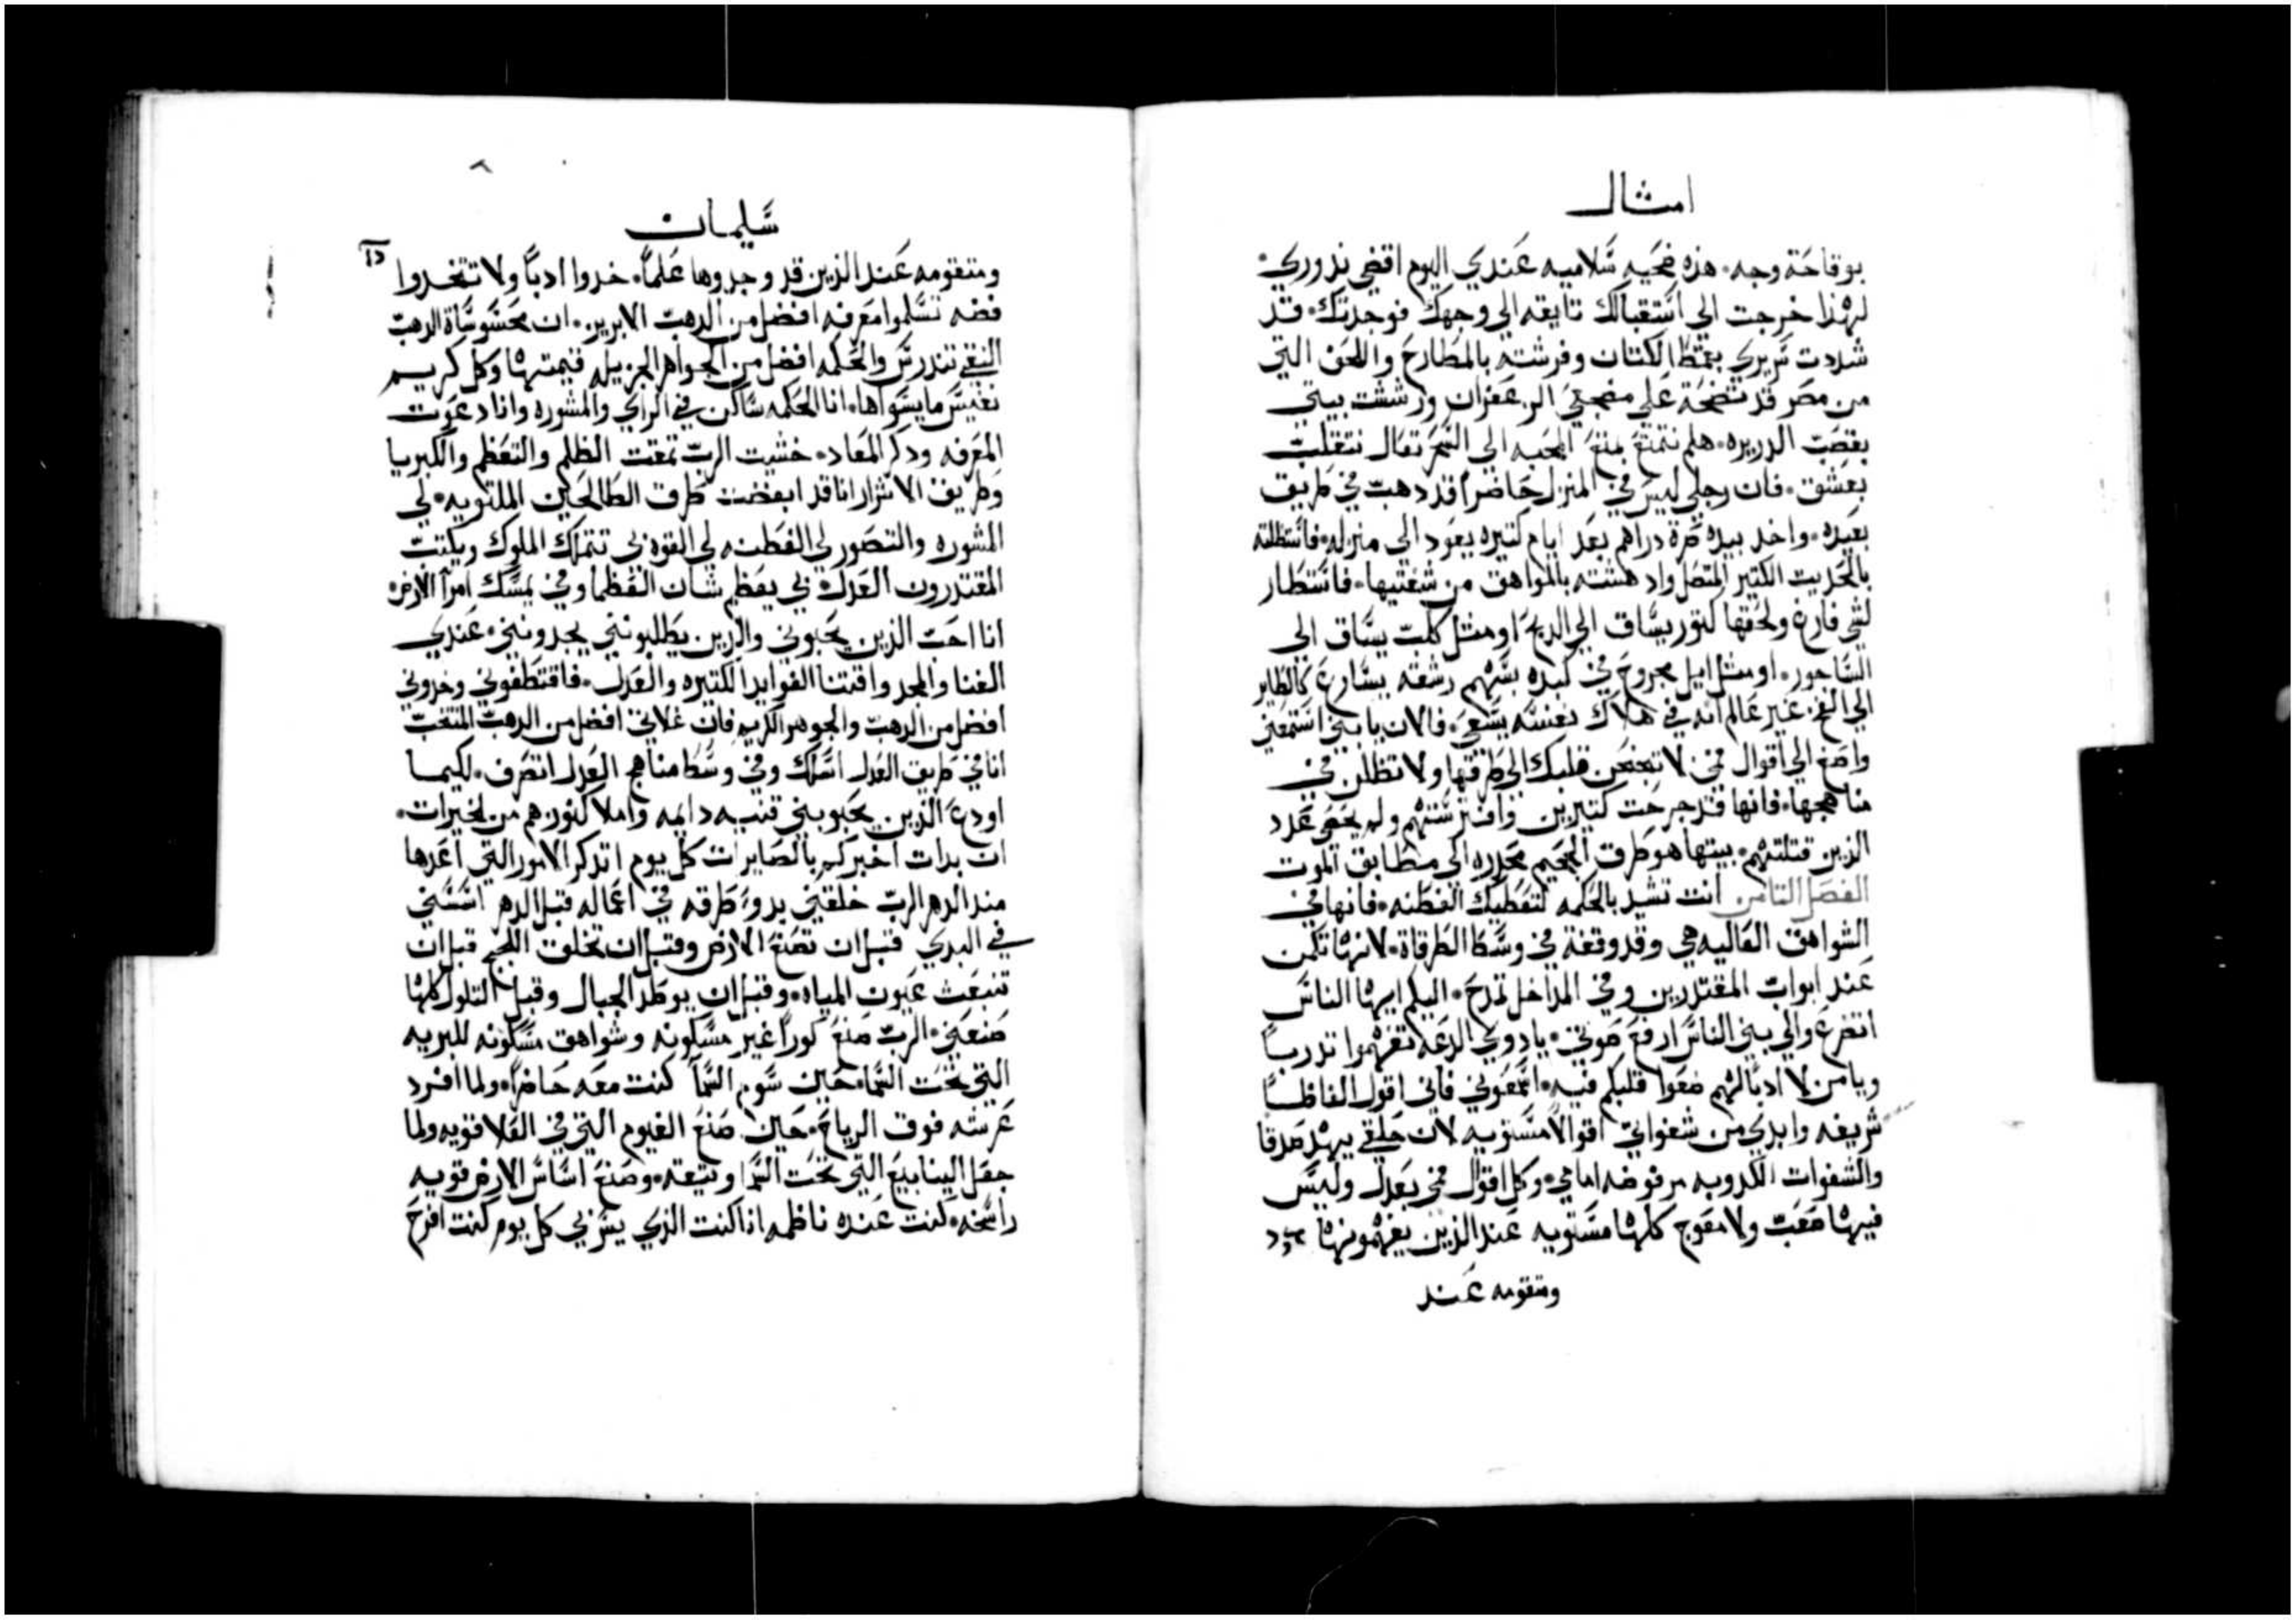 امثال
بوقاحة وجه. هذه ضحيه سلاميه عندي اليوم اقضي نذوري.
لهذا خرجت الي استقبالك تايقه الي وجهك فوجدتك. قد
شددت سريري بقمط الكتان وفرشته بالمطارح واللحف التي
من مصر قد نضحة علي مضجعي الزعفران ورششت بيتي
بقصب الدريره. هلم نتمتع المحبه الى السحر تعال نتقلب
بعشق. فان رجلي ليس في المنزل حاضراً قد دهب في طريق
بعيده. واخد بيده صرة دراهم بعد ايام كتيره يعود الى منزله. فاستظلته
بالحديت الكتير المتصل وادهشته بالمواهق من شفتيها. فاستطار
لشي فارغ ولحقها كتور يساق الي الدبح او مثل كلب يساق الي
الساجور. او مثل ايل مجروح في كبده بسهم رشقه يسارع كالطاير
الي الفخ. غير عالم انه في هلاك نفسه يسعي. فالان يا بني استمعني
واصغ الي اقوال فمي لا تجنحن قلبك الي طرقها ولا تظلن في
مناهجها. فانها قد جرحت كتيرين وافترستهم ولم يحصي عدد
الذين قتلتهم. بيتها هو طرق الجحيم محدره الي مطابق الموت
الفصل التامن انت تشيد بالحكمه لتعطيك الفطنه. فانها في
الشواهق العاليه هي وقد وقفة في وسط الطرقاة. لانها تكمن
عند ابواب المقتدرين وفي المداخل تمدح. اليكم ايها الناس
اتضرع والي بني الناس ارفع صوتي. يا دوي الدعه تفهموا تدرباً
ويا من لا ادباً لهم ضعوا قلبكم فيه. اسمعوني فاني اقول الفاظاً
شريفه وابدي من شفواتي اقوالاً مستويه لان حلقي يهد صدقا
والشفوات الكدوبه مرفوضه امامي. وكل اقوال فمي بعدل وليس
فيها صعب ولا معوج كلها مستويه عند الذين يفهمونها
ومتقومه عند
سليمان
ومتقومه عند الذين قد وجدوها علماً. خدوا ادباً ولا تتخدوا
فضه تسلموا معرفه افضل من الدهب الابريز. ان محسوساة الدهب
النقي تندرس والحكمه افضل من الجواهر الجزيله قيمتها وكل كريم
نفيس ما يسواها. انا الحكمه ساكن في الراي والمشوره وانا دعوت
المعرفه ودكر المعاد. خشيت الرب تمقت الظلم والتعظم والكبريا
وطريق الاشرار انا قد ابغضت طرق الطالحين الملتويه. لي
المشوره والتصور لي الفطنه لي القوه بي تتملك الملوك ويكتب
المقتدرون العدل بي يعظم شان العظما وفي يمسك امرآ الارض
انا احب الذين يحبوني والذين يطلبونني يجدونني. عندي
الغنا والمجد واقتنا الفوايد الكتيره والعدل. فاقتطفوني وخدوني
افضل من الدهب والجوهر الكريم فان غلاتي افضل من الدهب المنتخب
انا في طريق العدل اسلك وفي وسط مناهج العدل اتصرف. لكيما
اودع الذين يحبوبني قنيه دايمه واملا كنوزهم من الخيرات.
ان بدات اخبركم بالصايرات كل يوم اتدكر الامور التي اعدها
مند الدهر الرب خلقني بدوّ طرقه في اعماله قبل الدهر اسسني
في البدي قبل ان تصنع الارض وقبل ان تخلق اللجج قبل ان
تنبعث عيون المياه. وقبل ان يوطد الجبال وقبل التلول كلها
صنعني. الرب صنع كوراً غير مسكونه وشواهق مسكونه للبريه
التي تحت السما. حين سوم السمآ كنت معه حاضراً. ولما افرد
عرشه فوق الرياح. حين صنع الغيوم التي في العلا قويه ولما
جعل الينابيع التي تحت السما وتيقه. وصنع اساس الارض قويه
راسخه. كنت عنده ناظمه انا كنت الذي يسر بي كل يوم كنت افرح